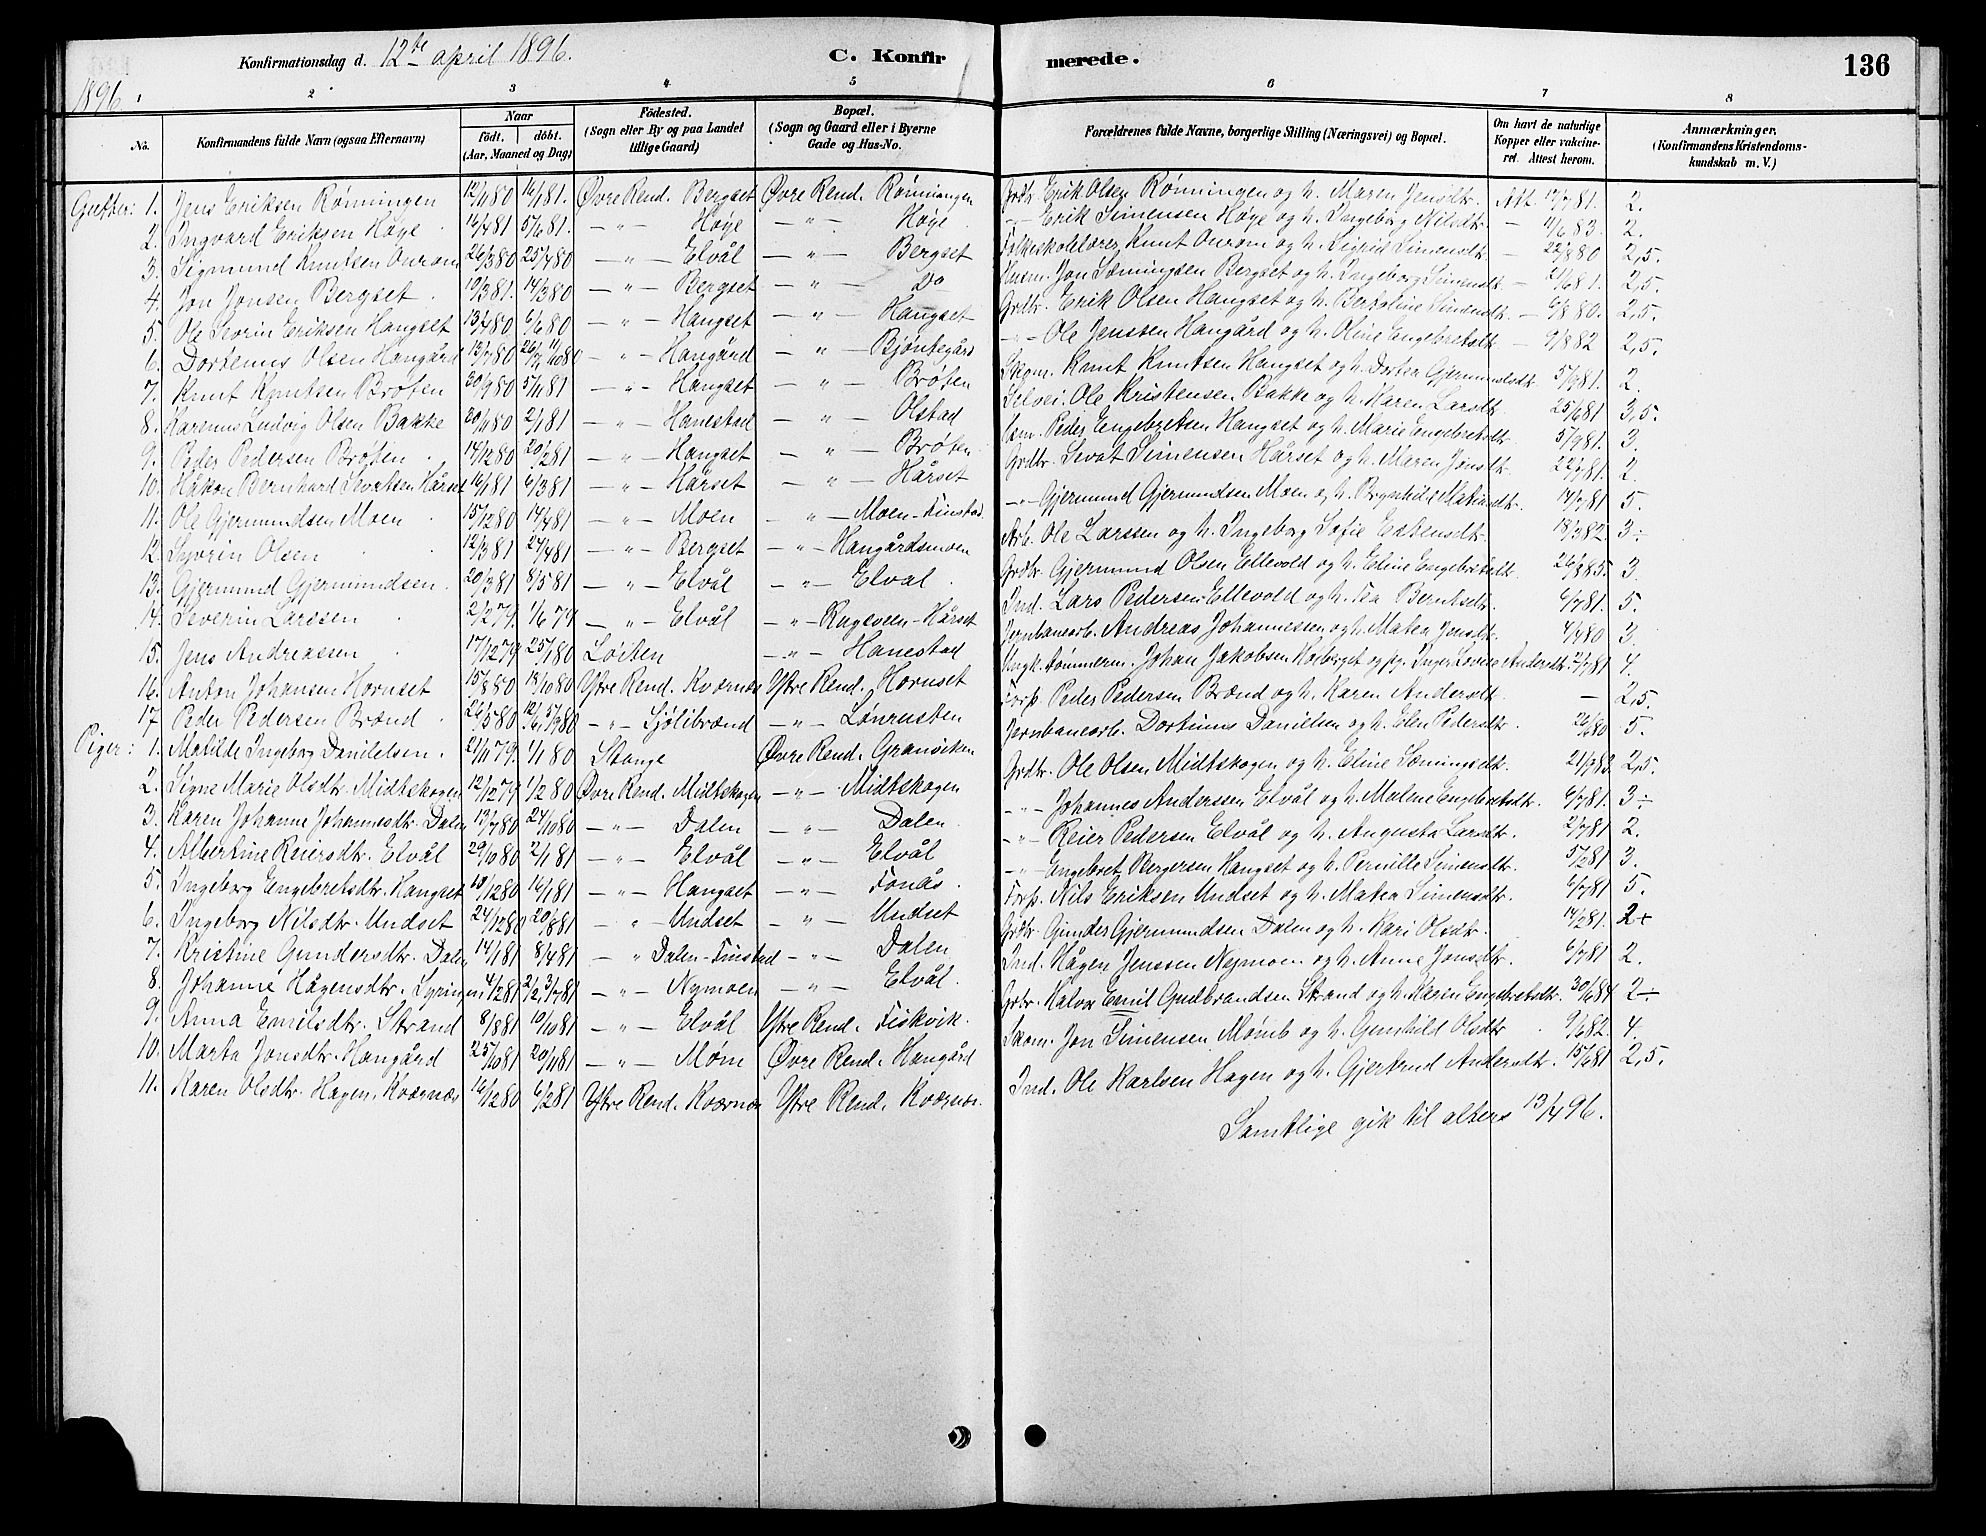 Konfirmationsdag d. 12te april 1896. C. Konfirmerede. 136
1896
1 2 3 4 5 6 7 8
No. Konfirmandens fulde Navn (ogsaa Efternavn) Naar født. døbt. (Aar, Maaned og Dag) Fødested. (Sogn eller By og paa Landet tillige Gaard) Bopæl. (Sogn og Gaard eller i Byerne Gade og Hus-No. Forældrenes fulde Navne, borgerlige Stilling (Næringsvei) og Bopæl. Om havt de naturlige Kopper eller vakcineret. Attest herom. Anmærkninger, (Konfirmandens Kristendomskundskab m. V.)
Gutter: 1. Jens Eriksen Rønningen 12/1180 16/181. Øvre Rend. Bergset Øvre Rend. Rønningen Grdbr. Erik Olsen Rønningen og h. Maren Jensdtr. Att. 2.
2. Ingvard Eriksen Høye 14/481 5/681. — " — Høye — " — Høye — " — Erik Simensen Høye og h. Ingeborg Nilsdtr. — 11/683. 2.
3. Sigmund Knutsen 26/380 25/480 — " — Elvål — " — Bergset Folkeskolelærer Knut og h. Sigrid Simensdtr. — 22/880 2,5.
4. Jon Jonsen Bergset 19/381. 14/380 — " — Bergset — " — Do Husm. Jon Sæmingsen Bergset og h. Ingeborg Simensdtr. — 21/681. 2,5.
5. Ole Severin Eriksen Hangset 13/480 6/680 — " — Hangset — " — Hangset Grdbr. Erik Olsen Hangset og h. Simensdtr. — 6/880. 2,5.
6. Dortenus Olsen Hangård 13/780 — " — Hangård — " — Bjøntegård — " — Ole Jenssen Hangård og h. Oline Engebretsdtr. — 9/882 2,5.
7. Knut Knutsen Brøten 30/980 5/1181 — " — Hangset — " — Brøten Knut Knutsen Hangset og h. Dortea Gjermundsdtr. 5/981. 2.
8. Karenus Ludvig Olsen Bakke 20/1180 2/181 — " — Hanestad — " — Olstad Selvei. Ole Kristensen Bakke og h. Karen Larsdtr. 25/681 3,5.
9. Peder Pedersen Brøten 14/1280 20/281 — " — Hangset — " — Brøten Peder Engebretsen Hangset og h. Marie Engebretsdtr. 5/981. 3.
10. Håkon Bernhard Sevatsen Hårset 16/181 6/381 — " — Hårset — " — Hårset Grdbr. Sevat Simensen Hårset og h. Maren Jonsdtr. 2.
11. Ole Gjermundsen Moen 15/1280 14/481 — " — Moen — " — Moen-Finstad — " — Gjermund Gjermundsen Moen og h. Brynhild 14/781 5.
12. Syvrin Olsen 12/381 24/481 — " — Bergset — " — Hangårdsmoen Arb. Ole Larssen og h. Ingeborg Sofie Esbensdtr. 18/382. 3÷
13. Gjermund Gjermundsen. 20/381 8/581 — " — Elvål — " — Elvål Grdbr. Gjermund Olsen Ellevold og h. Eline Engebretsdtr. 26/885. 3.
14. Severin Larssen 2/279. 1/679 — " — Elvål — " — Rugsveen-Hårset Ind. Lars Pedersen Ellevold og h. Tea Berntsdtr. 6/781. 5.
15. Jens Andreassen 17/1279 25/180 Løiten — " — Hanestad Jernbanearb. Andreas Johannessen og h. Matea Jensdtr. 4/480 3.
16. Anton Johansen Hornset 15/880 18/1080 Ytre Rend. Kværnæs Ytre Rend. Hornset Ungk. tømmerm. Johan Jakobsen og pg. Inger Lovise Andersdtr. 2/781 4.
17 Peder Pedersen Brænd 26/580 — " — Sjølibrænd — " — Lønrusten Forp. Peder Pedersen Brænd og h. Karen Andersdtr. — 2,5.
Piger: 1. Matilde Ingeborg Danielsen. 21/1179. 1/180 Stange Øvre Rend. Granviken Jernbanearb. Dortinus Danielsen og h. Elen Pedersdtr. 26/680 5.
2. Signe Marie Olsdtr. Midtskogen 12/1279 1/280 Øvre Rend. Midtskogen — " — Midtskogen Grdbr. Ole Olsen Midtskogen og h. Eline Sæmingsdtr. 21/983. 2,5.
3. Karen Johanne Johannesdtr. Dalen 13/780 24/1080 — " — Dalen — " — Dalen — " — Johannes Anderssen Elvål og h. Malene Engebretsdtr. 6/781. 3÷
4. Albertine Reiersdtr. Elvål 29/1080 2/181 — " — Elvål — " — Elvål — " — Reier Pedersen Elvål og h. Augusta Larsdtr. 2/781 2.
5. Ingeborg Engebretsdtr. Hangset 18/1280 16/181 — " — Hangset — " — Fonås. — " — Engebret Bergersen Hangset og h. Pernille Simensdtr. 5/281 3.
6. Ingeborg Nilsdtr. Undset 24/1280 20/881 " — Undset — " — Undset Forp. Nils Eriksen Undset og h. Matea Simensdtr. 6/781 5.
7. Kristine Gundersdtr. Dalen 14/181 8/481 — " Dalen-Finstad — " — Dalen Grdbr. Gunder Gjermundsen Dalen og h. Kari Olsdtr. 14/281. 2÷
8. Johanne Hågensdtr. 4/281 — " — Nymoen — " — Elvål. Ind. Hågen Jenssen Nymoen og h. Anne Jonsdtr. 6/781 2.
9. Anna Emilsdtr. Strand 8/881 10/1081 — " — Elvål Ytre Rend. Fiskvik. Grdbr. Halvor Emil Gudbrandsen Strand og h. Karen Engebretsdtr. 30/684 2÷
10. Marta Jonsdtr. Hangård 25/1081 20/1181 — " — Møm Øvre Rend. Hangård Skom. Jon Simensen Mømb og h. Gunhild Olsdtr. 9/682. 4.
11. Karen Olsdtr. Hagen, Kværnæs 16/1280 6/281 Ytre Rend. Kværnæs Ytre Rend. Kværnæs. Ind. Ole Karlsen Hagen og h. Gjertrud Andersdtr. 15/681 2,5.
Samtlige gik til alters 13/4 96.